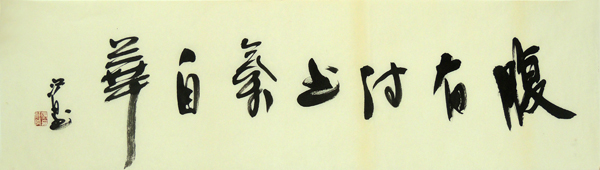 腹有诗书气自華